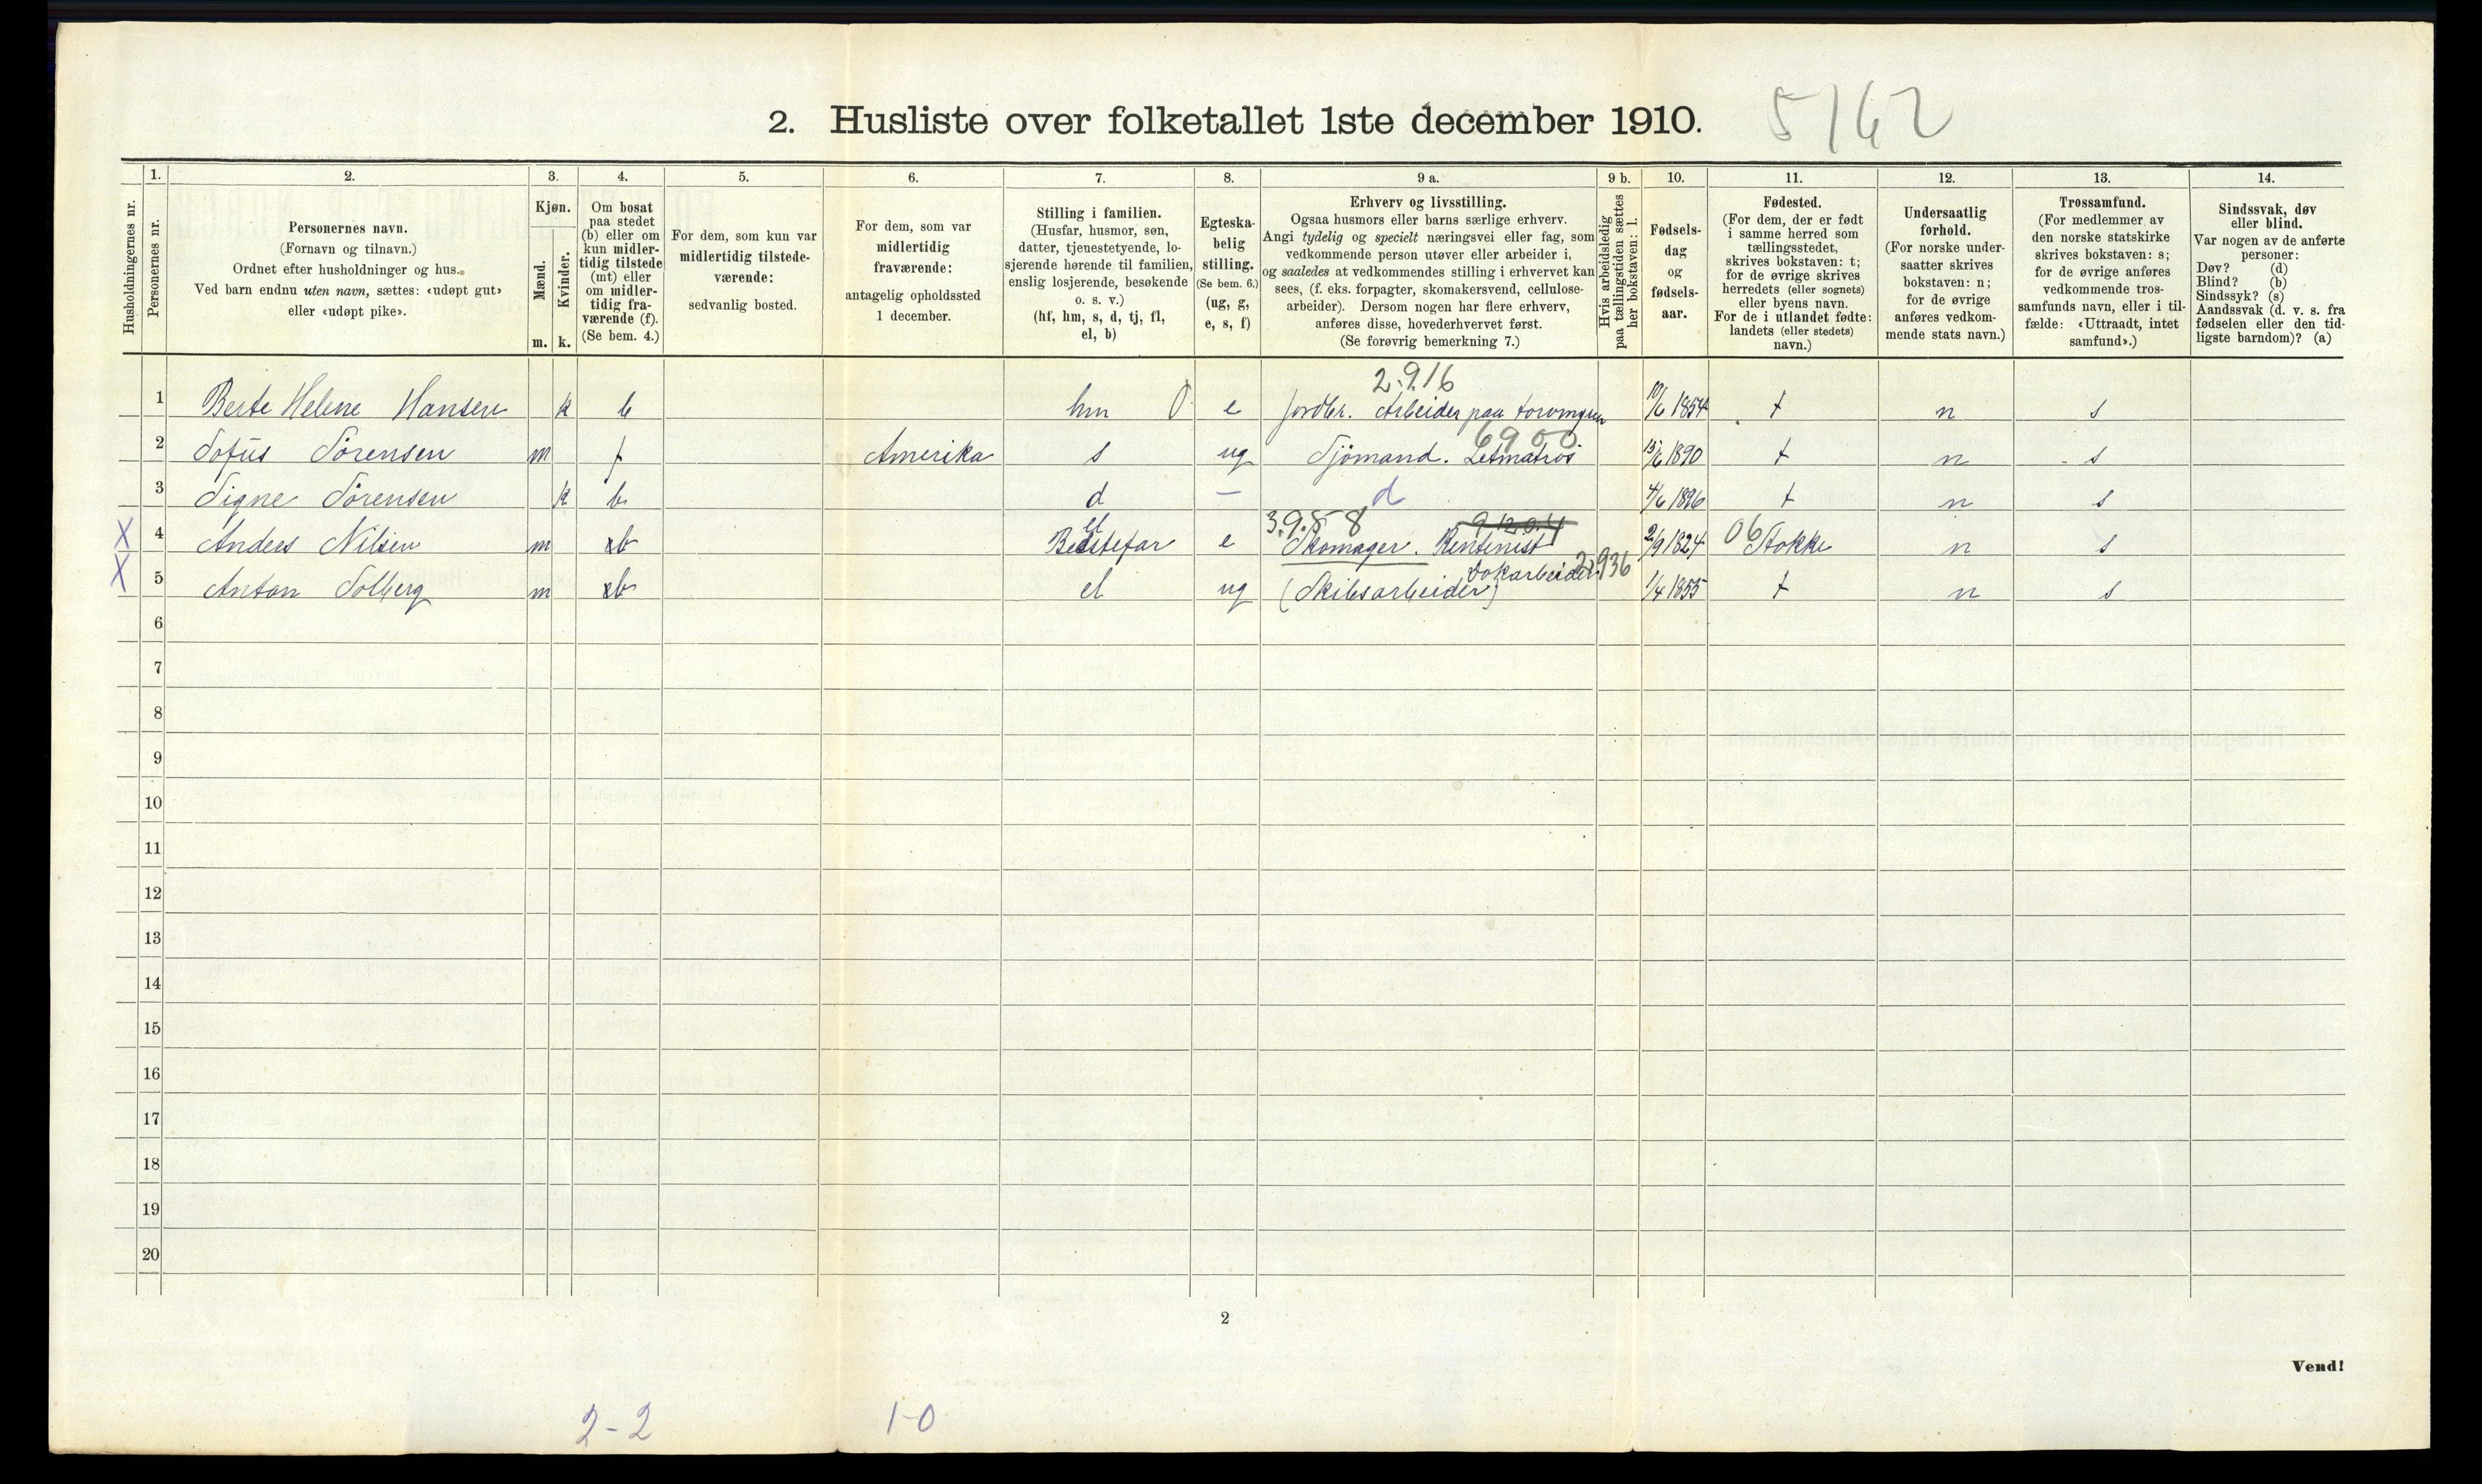 2. Husliste over folketallet 1ste december 1910.
5162
Husholdningernes nr.
1.
Personernes nr.
2.
Personernes navn.
(Fornavn og tilnavn.)
Ordnet efter husholdninger og hus.
Ved barn endnu uten navn, sættes: «udøpt gut»
eller «udøpt pike».
3.
Kjøn.
Mænd.
Kvinder.
m. k.
4.
Om bosat
paa stedet
(b) eller om
kun midler-
tidig tilstede
(mt) eller
om midler-
tidig fra-
værende (f).
(Se bem. 4.)
5.
For dem, som kun var
midlertidig tilstede-
værende:
sedvanlig bosted.
6.
For dem, som var
midlertidig
fraværende:
antagelig opholdssted
1 december.
7.
Stilling i familien.
(Husfar, husmor, søn,
datter, tjenestetyende, lo-
sjerende hørende til familien,
enslig losjerende, besøkende
o. s. v.)
(hf, hm, s, d, tj, fl,
el, b)
8.
Egteska-
belig
stilling.
(Se bem. 6.)
(ug, g,
e, s, f)
9 a.
Erhverv og livsstilling.
Ogsaa husmors eller barns særlige erhverv.
Angi tydelig og specielt næringsvei eller fag, som
vedkommende person utøver eller arbeider i,
og saaledes at vedkommendes stilling i erhvervet kan
sees, (f. eks. forpagter, skomakersvend, cellulose-
arbeider). Dersom nogen har flere erhverv,
anføres disse, hovederhvervet først.
(Se forøvrig bemerkning 7.)
9 b.
Hvis arbeidsledig
paa tællingstiden sættes
her bokstaven: l.
10.
Fødsels-
dag
og
fødsels-
aar.
11.
Fødested.
(For dem, der er født
i samme herred som
tællingsstedet,
skrives bokstaven: t;
for de øvrige skrives
herredets (eller sognets)
eller byens navn.
For de i utlandet fødte:
landets (eller stedets)
navn.)
12.
Undersaatlig
forhold.
(For norske under-
saatter skrives
bokstaven: n;
for de øvrige
anføres vedkom-
mende stats navn.)
13.
Trossamfund.
(For medlemmer av
den norske statskirke
skrives bokstaven: s;
for de øvrige anføres
vedkommende tros-
samfunds navn, eller i til-
fælde: «Uttraadt, intet
samfund».)
14.
Sindssvak, døv
eller blind.
Var nogen av de anførte
personer:
Døv? (d)
Blind? (b)
Sindssyk? (s)
Aandssvak (d. v. s. fra
fødselen eller den tid-
ligste barndom)? (a)
2.916
1 Berte Helene Hansen k b hm 0 e Jordbr. Arbeider paa 10/6 1854 t n s
6900
2 Sofus Sörensen m f Amerika s ug Sjömand. Letmatros 15/6 1890 t n s
3 Signe Sörensen k b d - d 4/6 1896 t n s
el 3.958 91204
X 4 Anders Nilsen m b Bedstefar e Skomager. Rentenist 2/9 1824 06 Stokke n s
Dokarbeider 2.936
X 5 Anton Solberg m b el ug (Skibsarbeider) 1/4 1855 t n s
6
7
8
9
10
11
12
13
14
15
16
17
18
19
20
2
Vend!
2-2 1-0